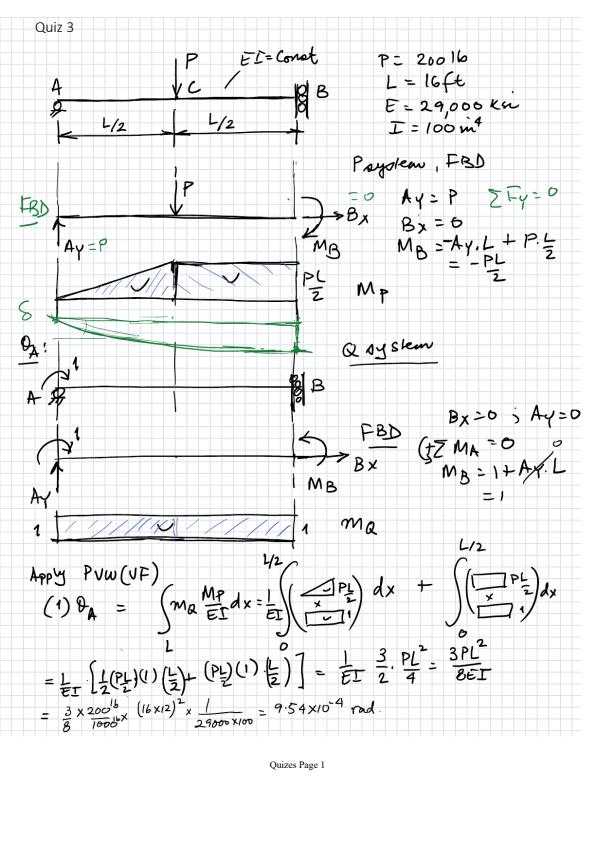 Quiz 3
P EI=Const
A C B
L/2 L/2
P = 200 lb
L = 16ft
E = 29,000 ksi
I = 100 in⁴
P system, FBD
FBD P =0 Bx
Ay = P ΣFy = 0
Bx = 0
MB = -Ay.L + P.L/2
= -PL/2
Ay=P MB
PL/2 Mp
δ
θA: Q system
1
A B
Bx=0 ; Ay=0
1 FBD
Bx
ΣMA = 0
MB = 1 + Ay.L 0
= 1
Ay MB
1 1 mQ
Apply PVW (VF)
(1) θA = ∫L mQ Mp/EI dx = 1/EI ∫0 L/2 (PL/2 x 1) dx + ∫0 L/2 (PL/2 x 1) dx
= 1/EI · [1/2 (PL/2)(1)(L/2) + (PL/2)(1)(L/2)] = 1/EI 3/2 · PL²/4 = 3PL²/8EI
= 3/8 x 200 lb/1000 lb x (16 x 12)² x 1/29000 x 100 = 9.54 x 10⁻⁴ rad.
Quizes Page 1